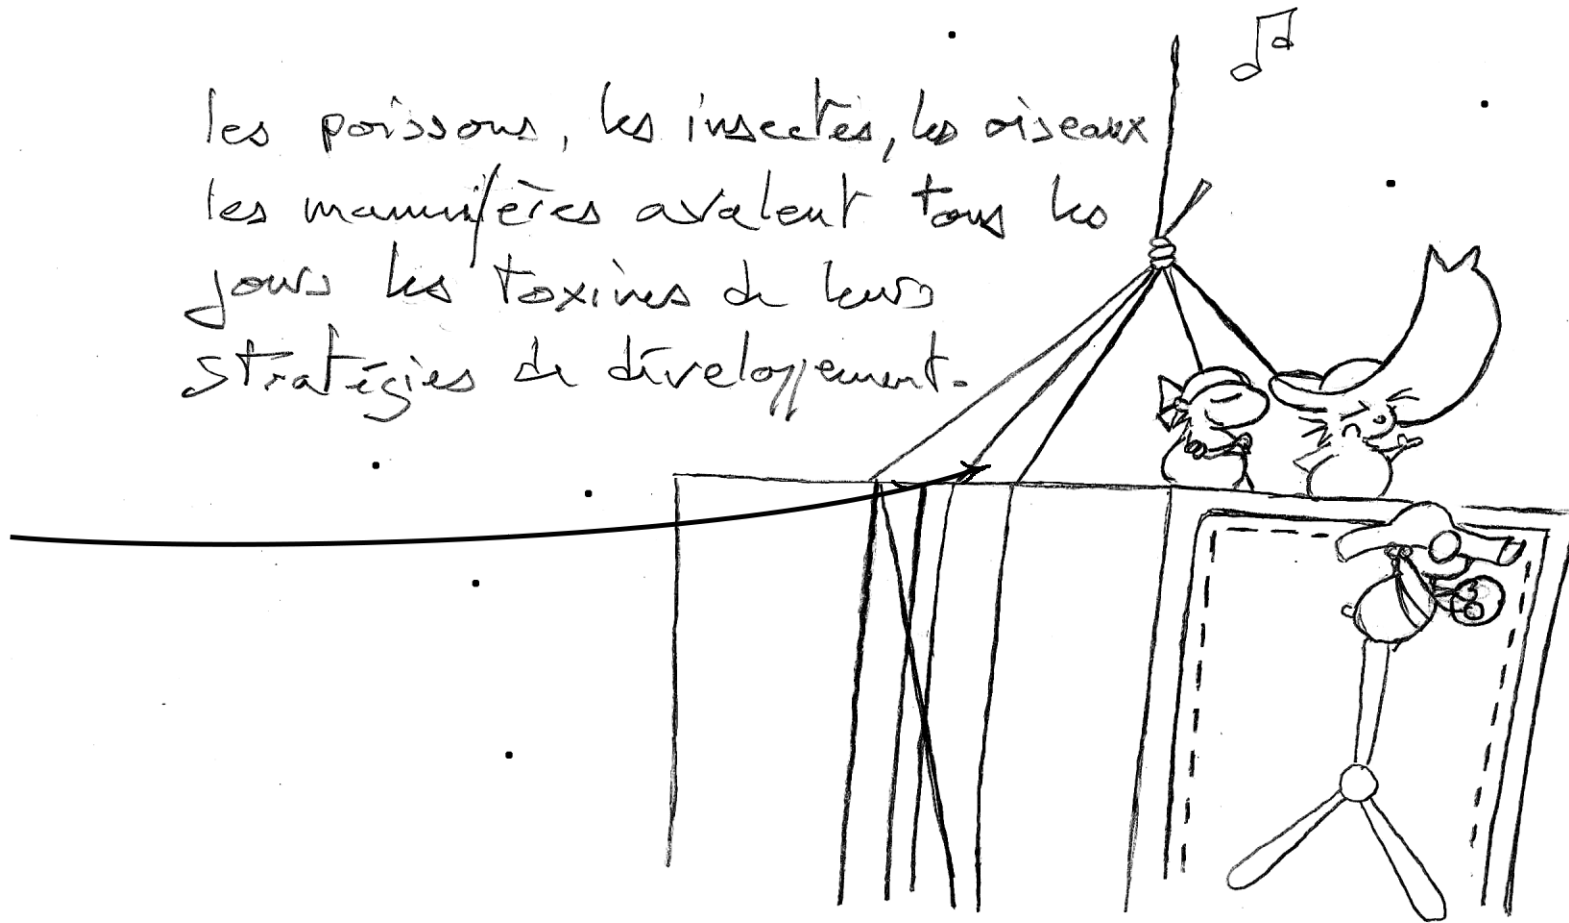 les poissons, les insectes, les oiseaux
les mammifères avalent tous les
jours les toxines de leurs
stratégies de développement.